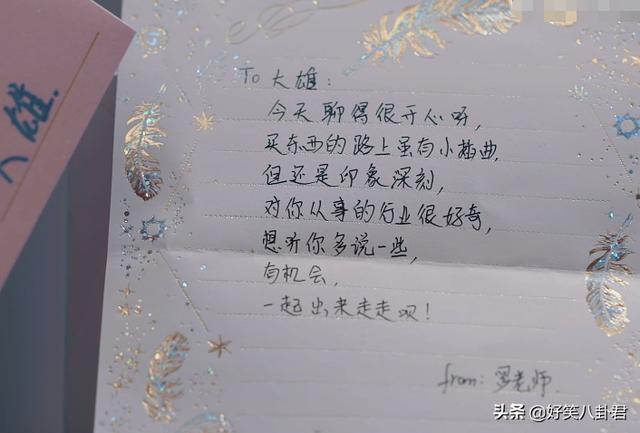 大雄
To 大雄：
今天聊得很开心呀，
买东西的路上虽有小插曲，
但还是印象深刻，
对你从事的行业很好奇，
想听你多说一些，
有机会，
一起出来走走呗！
from：罗老师
头条 @好笑八卦君